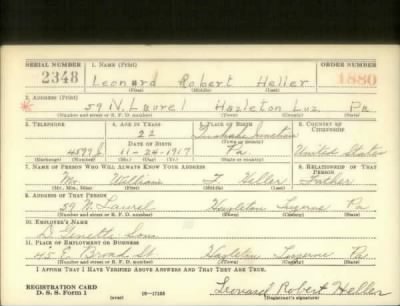 SERIAL NUMBER 1. NAME (Print) ORDER NUMBER
2348 Leonard Robert Heller 1880
(First) (Middle) (Last)
2. ADDRESS (Print)
59 N. Laurel Hazleton Luz. Pa
(Number and street or R. F. D. number) (Town) (County) (State)
3. TELEPHONE 4. AGE IN YEARS 5. PLACE OF BIRTH 6. COUNTRY OF CITIZENSHIP
22
DATE OF BIRTH (Town or county)
4599J 11-24-1917 Pa United States
(Exchange) (Number) (Mo.) (Day) (Yr.) (State or country)
7. NAME OF PERSON WHO WILL ALWAYS KNOW YOUR ADDRESS 8. RELATIONSHIP OF THAT PERSON
Mr. William F. Heller Father
(Mr., Mrs., Miss) (First) (Middle) (Last)
9. ADDRESS OF THAT PERSON
59 N. Laurel Hazleton Luzerne Pa
(Number and street or R. F. D. number) (Town) (County) (State)
10. EMPLOYER'S NAME
Sons
11. PLACE OF EMPLOYMENT OR BUSINESS
45 E Broad St. Hazleton Luzerne Pa
(Number and street or R. F. D. number) (Town) (County) (State)
I AFFIRM THAT I HAVE VERIFIED ABOVE ANSWERS AND THAT THEY ARE TRUE.
REGISTRATION CARD
D. S. S. Form 1 (over) Leonard Robert Heller
(Registrant's signature)